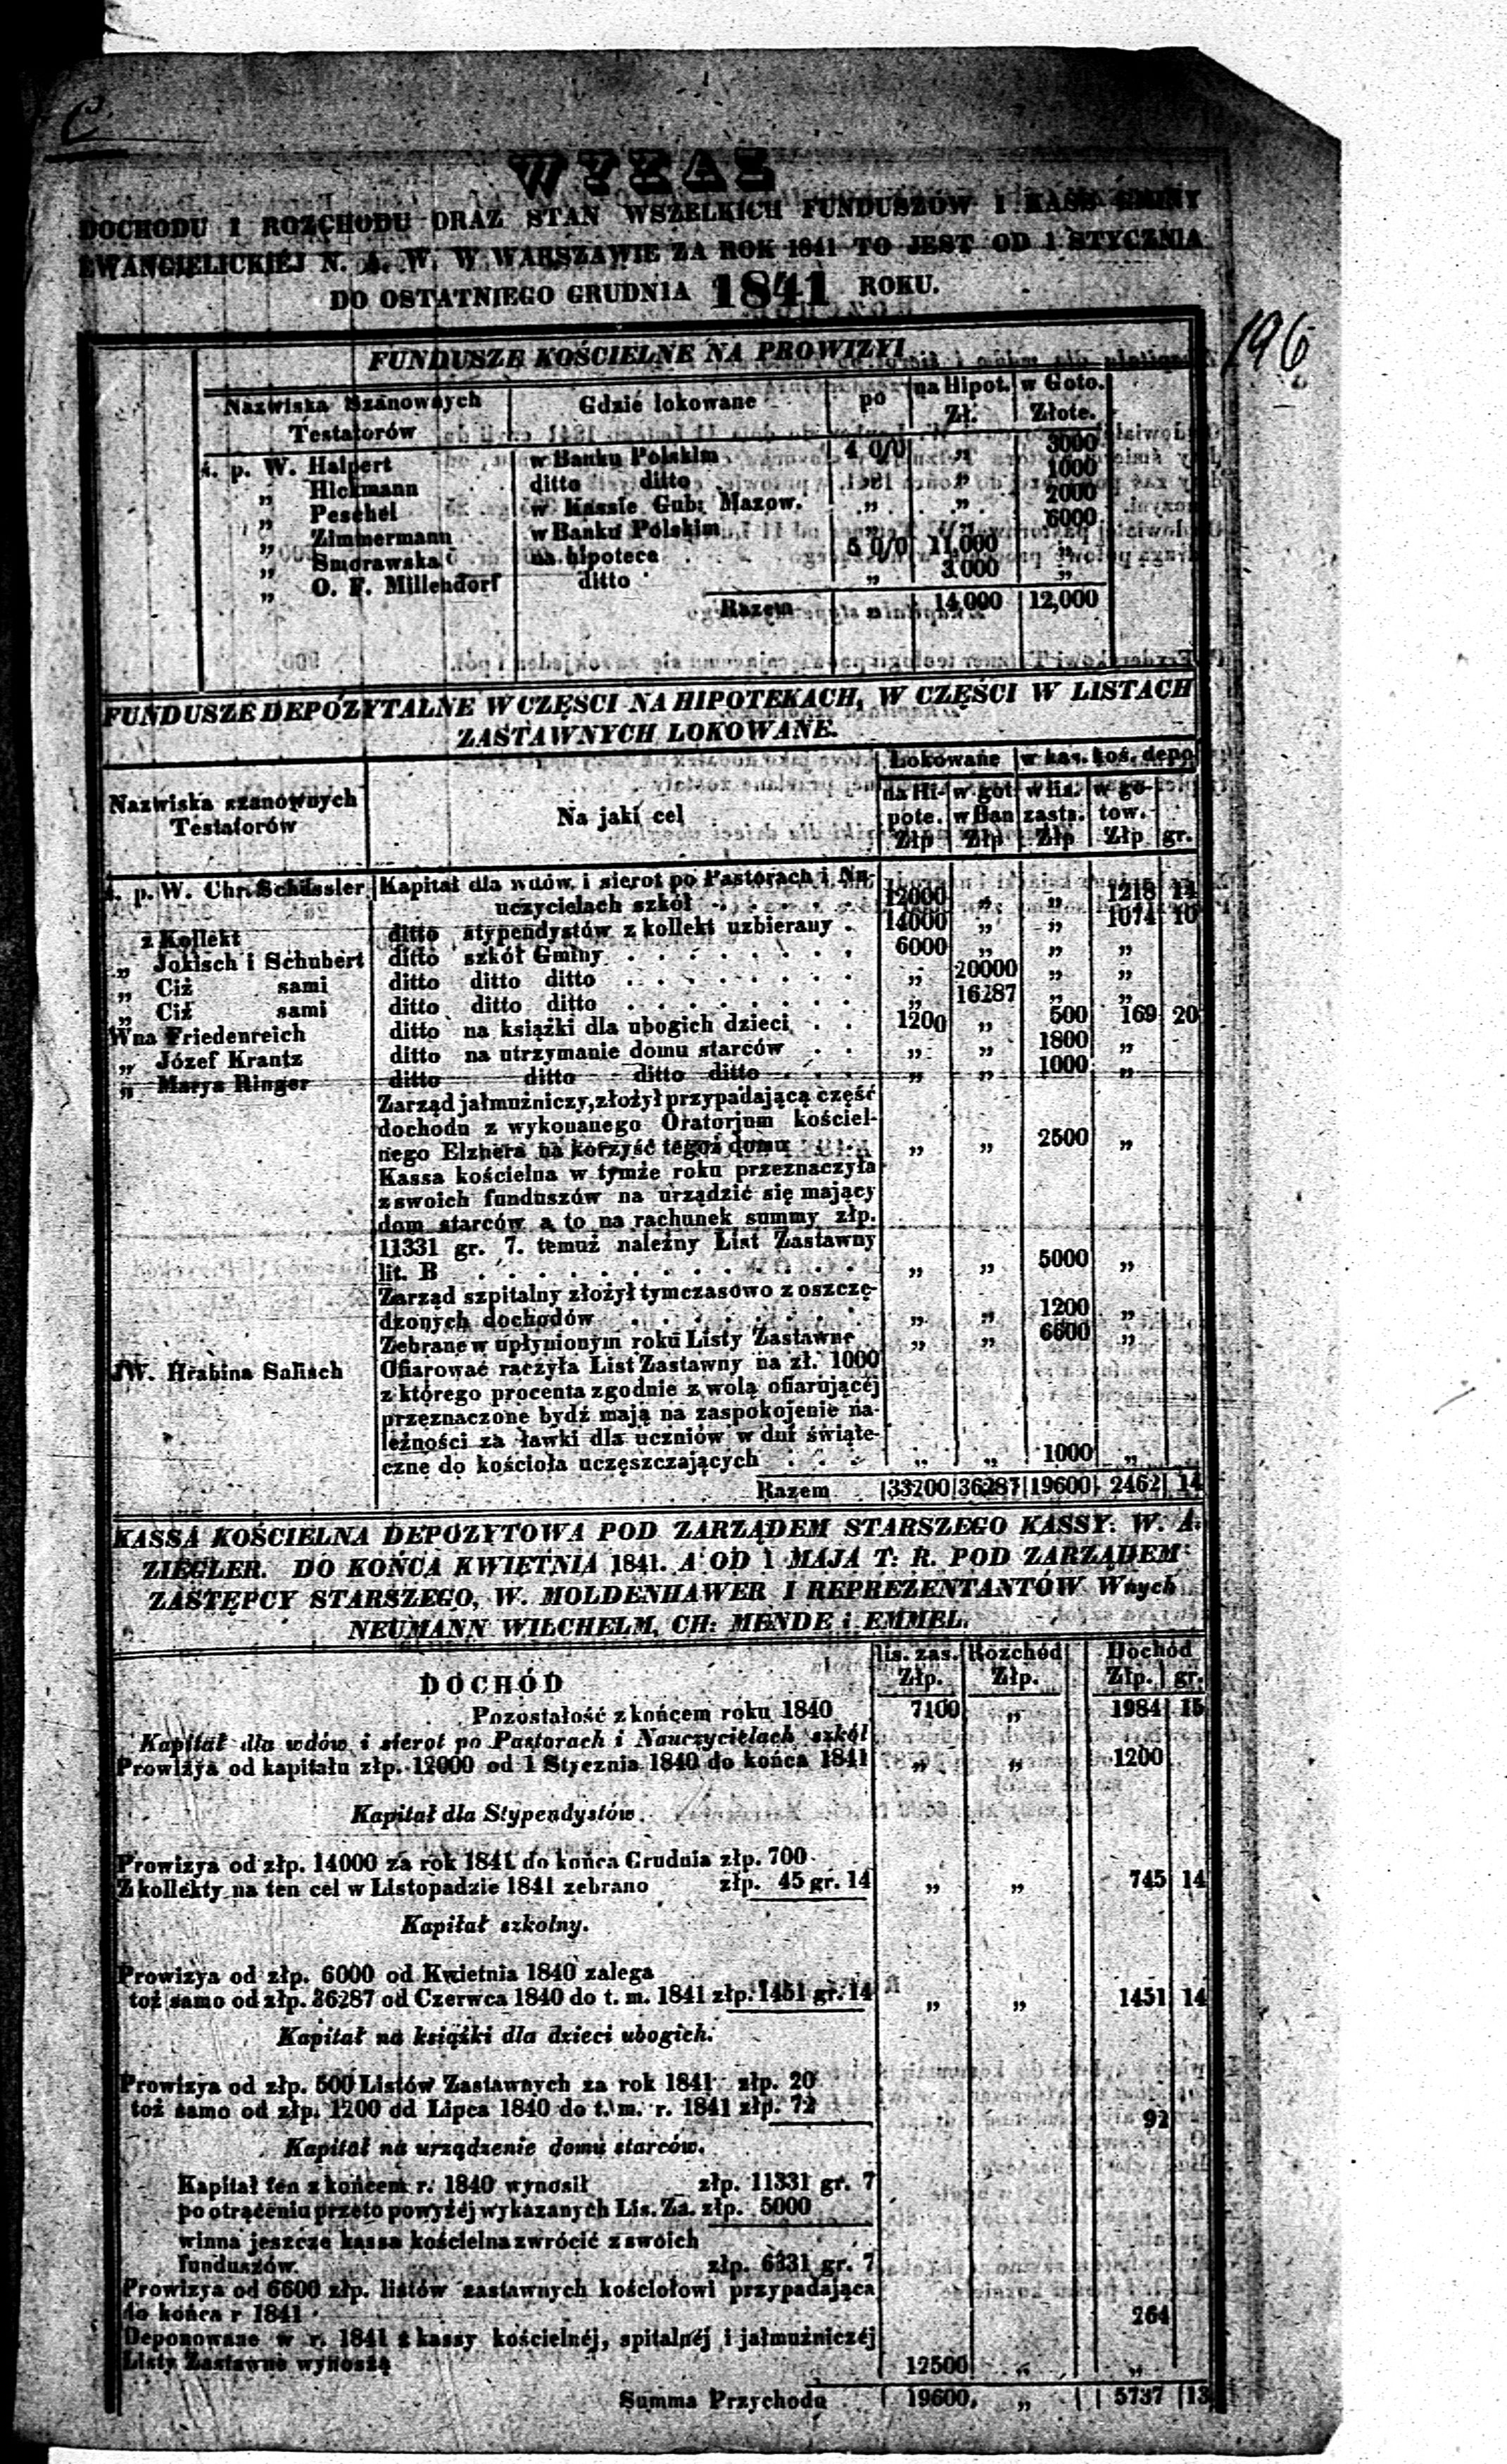 C.
WYKAZ
DOCHODU I ROZCHODU ORAZ STAN WSZELKICH FUNDUSZÓW I KASS GMINY
EWANGIELICKIÉJ N. A. W. W WARSZAWIE ZA ROK 1841 TO JEST OD 1 STYCZNIA
DO OSTATNIEGO GRUDNIA 1841 ROKU.
196
FUNDUSZE KOŚCIELNE NA PROWIZYI
Nazwiska Szanownych Testatorów | Gdzié lokowane | po | na Hipot. Zł. | w Goto. Złote.
ś. p. W. Halpert | w Banku Polskim | 4 0/0 | „ | 3000
„ Hickmann | ditto ditto | „ | 1000
„ Peschel | w Kassie Gub: Mazow. | „ | „ | 2000
„ Zimmermann | w Banku Polskim | „ | „ | 6000
„ Smorawska | na hipotece | 5 0/0 | 11,000 | „
„ O. F. Millendorf | ditto | „ | 3,000 | „
Razem | 14,000 | 12,000
FUNDUSZE DEPOZYTALNE W CZĘŚCI NA HIPOTEKACH, W CZĘŚCI W LISTACH
ZASTAWNYCH LOKOWANE.
Nazwiska szanownych Testatorów | Na jaki cel | Lokowane | w kas. koś. depo
na Hipote. Złp | w got w Ban Złp | w lis. zasta. Złp | w gotow. Złp | gr.
ś. p. W. Chr. Schüssler | Kapitał dla wdów i sierot po Pastorach i Na-
uczycielach szkół . . . . | 12000 | „ | „ | 1218 | 14
z Kollekt | ditto stypendystów z kollekt uzbierany . | 14000 | „ | „ | 1074 | 10
„ Jokisch i Schubert | ditto szkół Gminy . . . . | 6000 | „ | „ | „
„ Ciż sami | ditto ditto ditto . . . . | „ | 20000 | „ | „
„ Ciż sami | ditto ditto ditto . . . . | „ | 16287 | „ | „
Wna Friedenreich | ditto na książki dla ubogich dzieci . . | 1200 | „ | 500 | 169 | 20
„ Józef Krantz | ditto na utrzymanie domu starców . . | „ | „ | 1800 | „
„ Marya Ringer | ditto ditto ditto ditto . . . | „ | „ | 1000 | „
Zarząd jałmużniczy, złożył przypadającą część
dochodu z wykonanego Oratorjum kościel-
nego Elznera na korzyść tegoż domu | „ | „ | 2500 | „
Kassa kościelna w tymże roku przeznaczyła
z swoich funduszów na urządzić się mający
dom starców a to na rachunek summy złp.
11331 gr. 7. temuż należny List Zastawny
lit. B . . . . | „ | „ | 5000 | „
Zarząd szpitalny złożył tymczasowo z oszczę-
dzonych dochodów . . . . | „ | „ | 1200 | „
Zebrane w upłynionym roku Listy Zastawne | „ | „ | 6600 | „
JW. Hrabina Salisch | Ofiarować raczyła List Zastawny na zł. 1000
z którego procenta zgodnie z wolą ofiarującéj
przeznaczone bydź mają na zaspokojenie na-
leżności za ławki dla uczniów w dni święte-
czne do kościoła uczęszczających . . . | „ | „ | 1000 | „
Razem | 33200 | 36287 | 19600 | 2462 | 14
KASSA KOŚCIELNA DEPOZYTOWA POD ZARZĄDEM STARSZEGO KASSY: W. A.
ZIEGLER. DO KOŃCA KWIETNIA 1841. A OD 1 MAJA T: R. POD ZARZĄDEM
ZASTĘPCY STARSZEGO, W. MOLDENHAWER I REPREZENTANTÓW Wnych
NEUMANN WILCHELM, CH: MENDE i EMMEL.
DOCHÓD | lis. zas. Złp. | Rozchód Złp. | Dochód Złp. | gr.
Pozostałość z końcem roku 1840 | 7100 | „ | 1984 | 15
Kapitał dla wdów i sierot po Pastorach i Nauczycielach szkół
Prowizya od kapitału złp. 12000 od 1 Stycznia 1840 do końca 1841 | „ | „ | 1200
Kapitał dla Stypendystów.
Prowizya od złp. 14000 za rok 1841 do końca Grudnia złp. 700
Z kollekty na ten cel w Listopadzie 1841 zebrano złp. 45 gr. 14 | „ | „ | 745 | 14
Kapitał szkolny.
Prowizya od złp. 6000 od Kwietnia 1840 zalega
toż samo od złp. 36287 od Czerwca 1840 do t. m. 1841 złp. 1451 gr. 14 | „ | „ | 1451 | 14
Kapitał na książki dla dzieci ubogich.
Prowizya od złp. 500 Listów Zastawnych za rok 1841 złp. 20
toż samo od złp. 1200 od Lipca 1840 do t. m. r. 1841 złp. 72
92
Kapitał na urządzenie domu starców.
Kapitał ten z końcem r. 1840 wynosił złp. 11331 gr. 7
po otrąceniu przeto powyżéj wykazanych Lis. Za. złp. 5000
winna jeszcze kassa kościelna zwrócić z swoich
funduszów. złp. 6331 gr. 7
Prowizya od 6600 złp. listów zastawnych kościołowi przypadająca
do końca r 1841 | 264
Deponowane w r. 1841 z kassy kościelnéj, spitalnéj i jałmużniczéj
Listy Zastawne wynoszą | 12500 | „ | „
Summa Przychodu | 19600 | „ | 5737 | 13